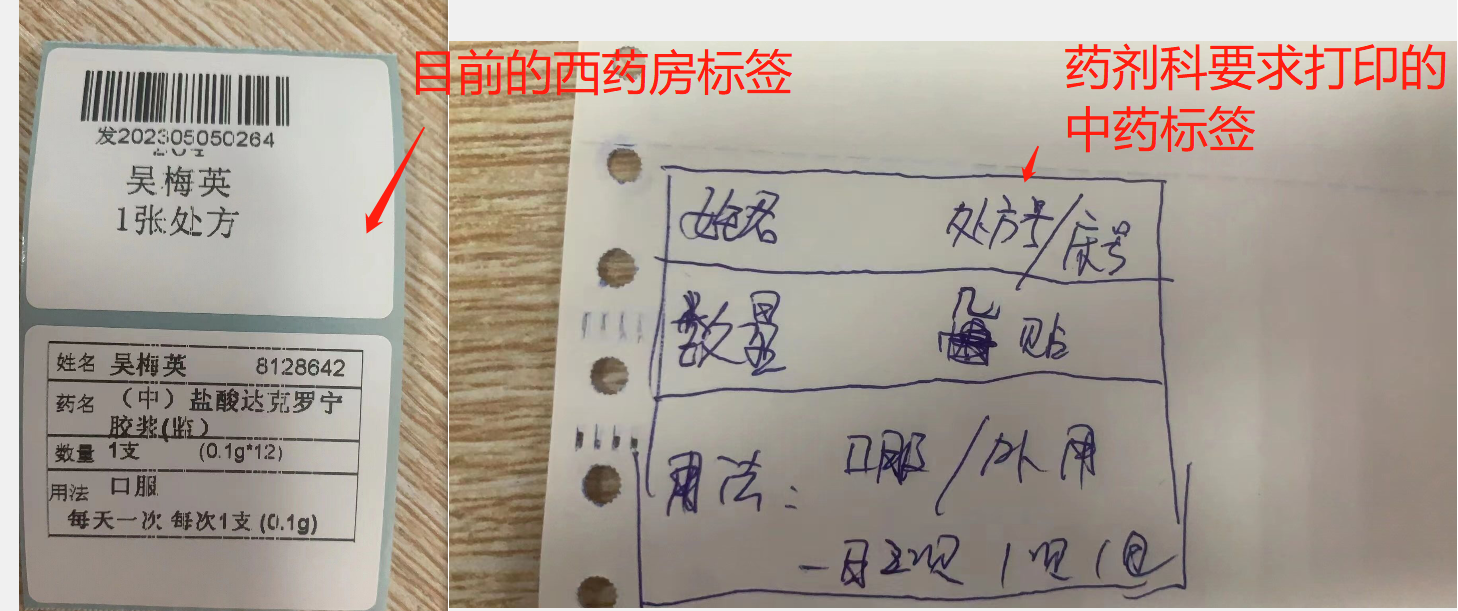 目前的西药房标签
药剂科要求打印的
中药标签
发202305050264
吴梅英
1张处方
姓名 吴梅英 8128642
药名 （中）盐酸达克罗宁
胶浆(监)
数量 1支 (0.1g*12)
用法 口服
每天一次 每次1支 (0.1g)
姓名 处方号/床号
数量 几贴
用法: 口服/外用